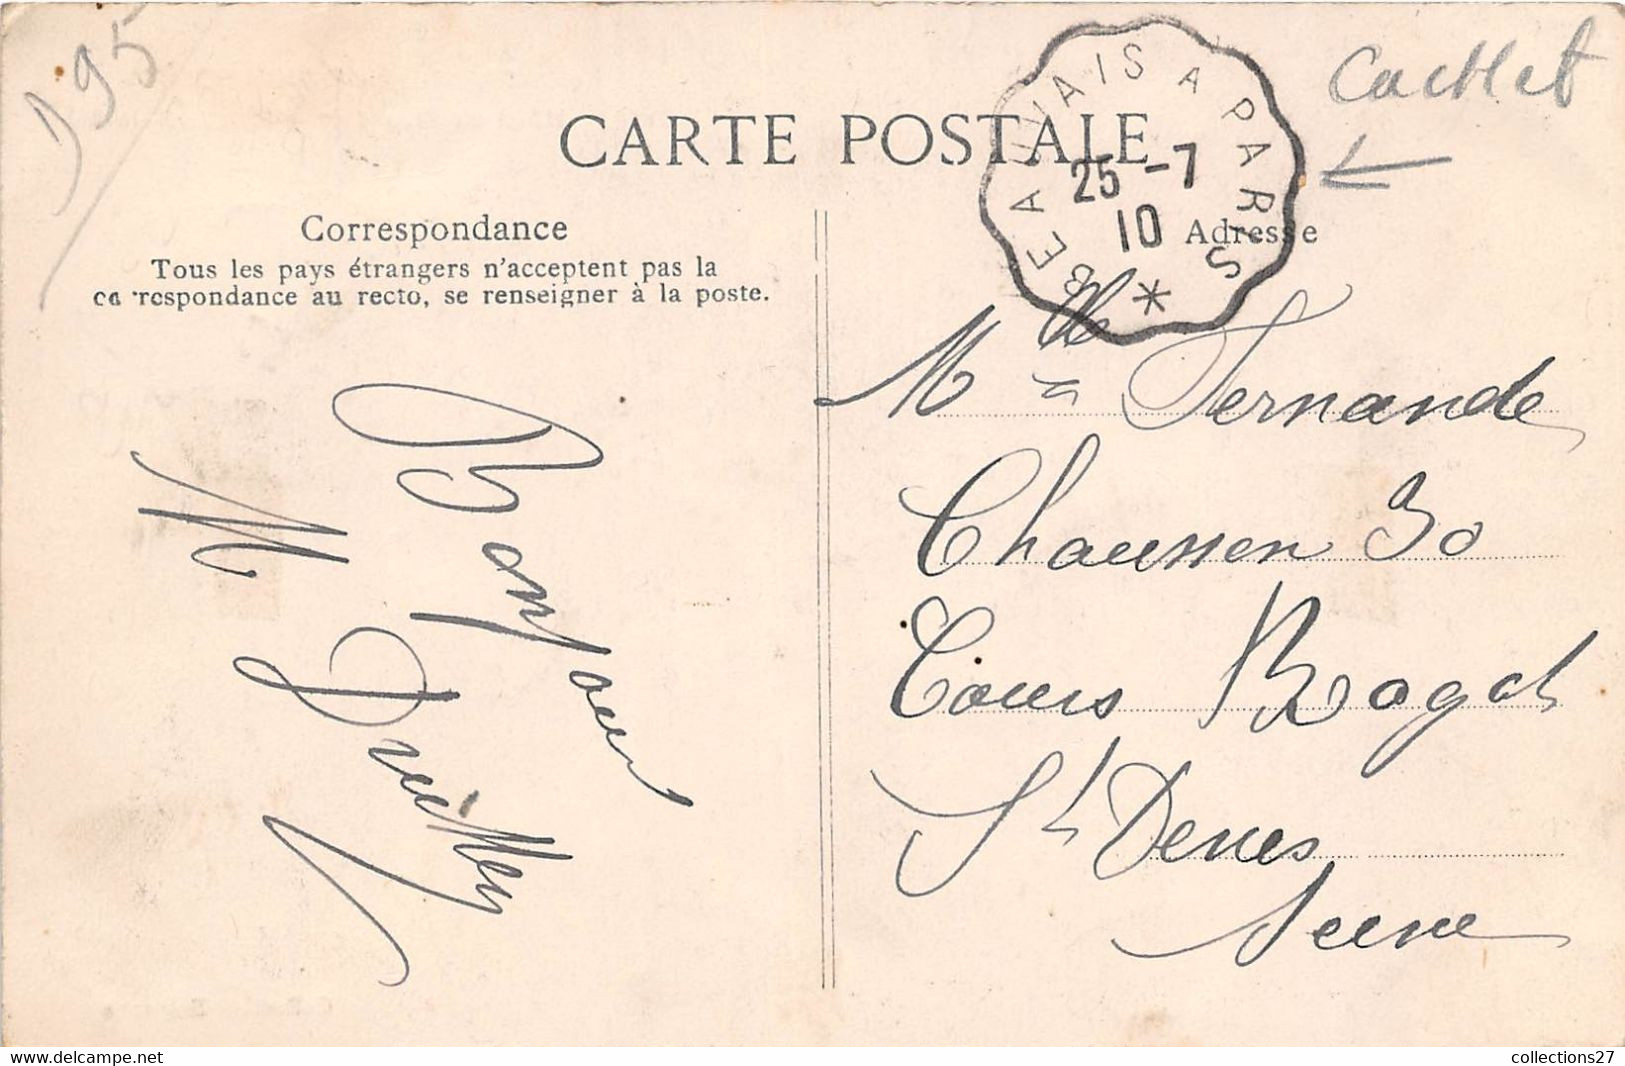 195
Cachet
CARTE POSTALE
BEAUVAIS A PARIS
25 -7
10
Correspondance
Adresse
Tous les pays étrangers n'acceptent pas la
correspondance au recto, se renseigner à la poste.
Mlle Fernande
Chaussen 30
Cours Ragot
St Denes
Seine
Bonjour
M
collections27